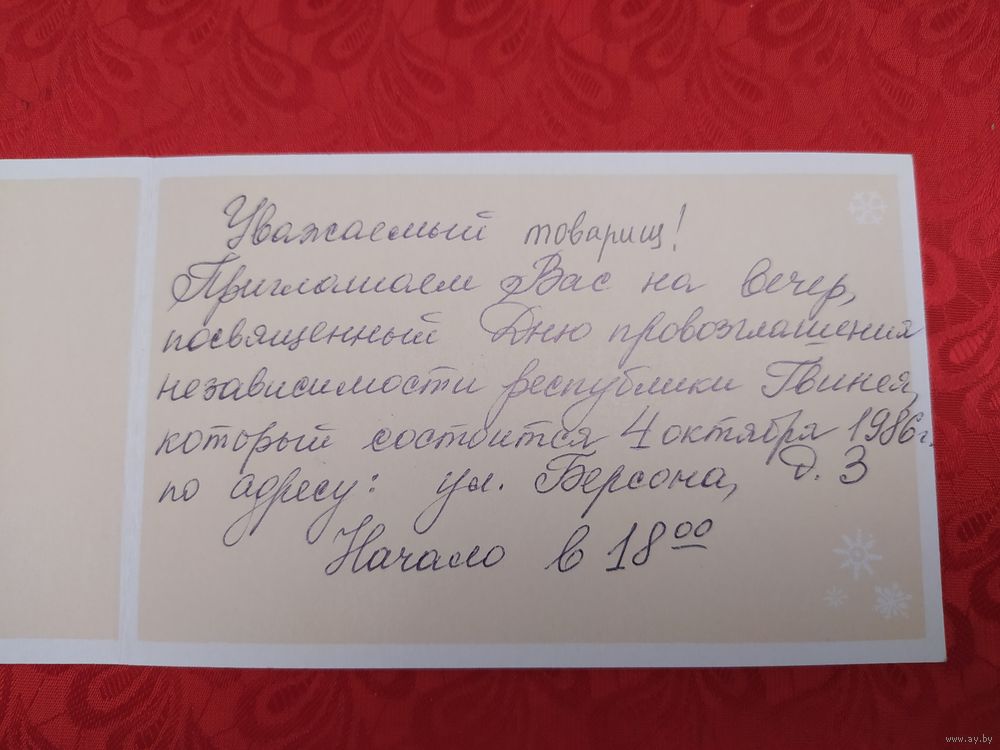 Уважаемый товарищ!
Приглашаем Вас на вечер,
посвященный Дню провозглашения
независимости республики Гвинея,
который состоится 4 октября 1986 г.
по адресу: ул. Берсона, д. 3
Начало в 18 00
www.ay.by